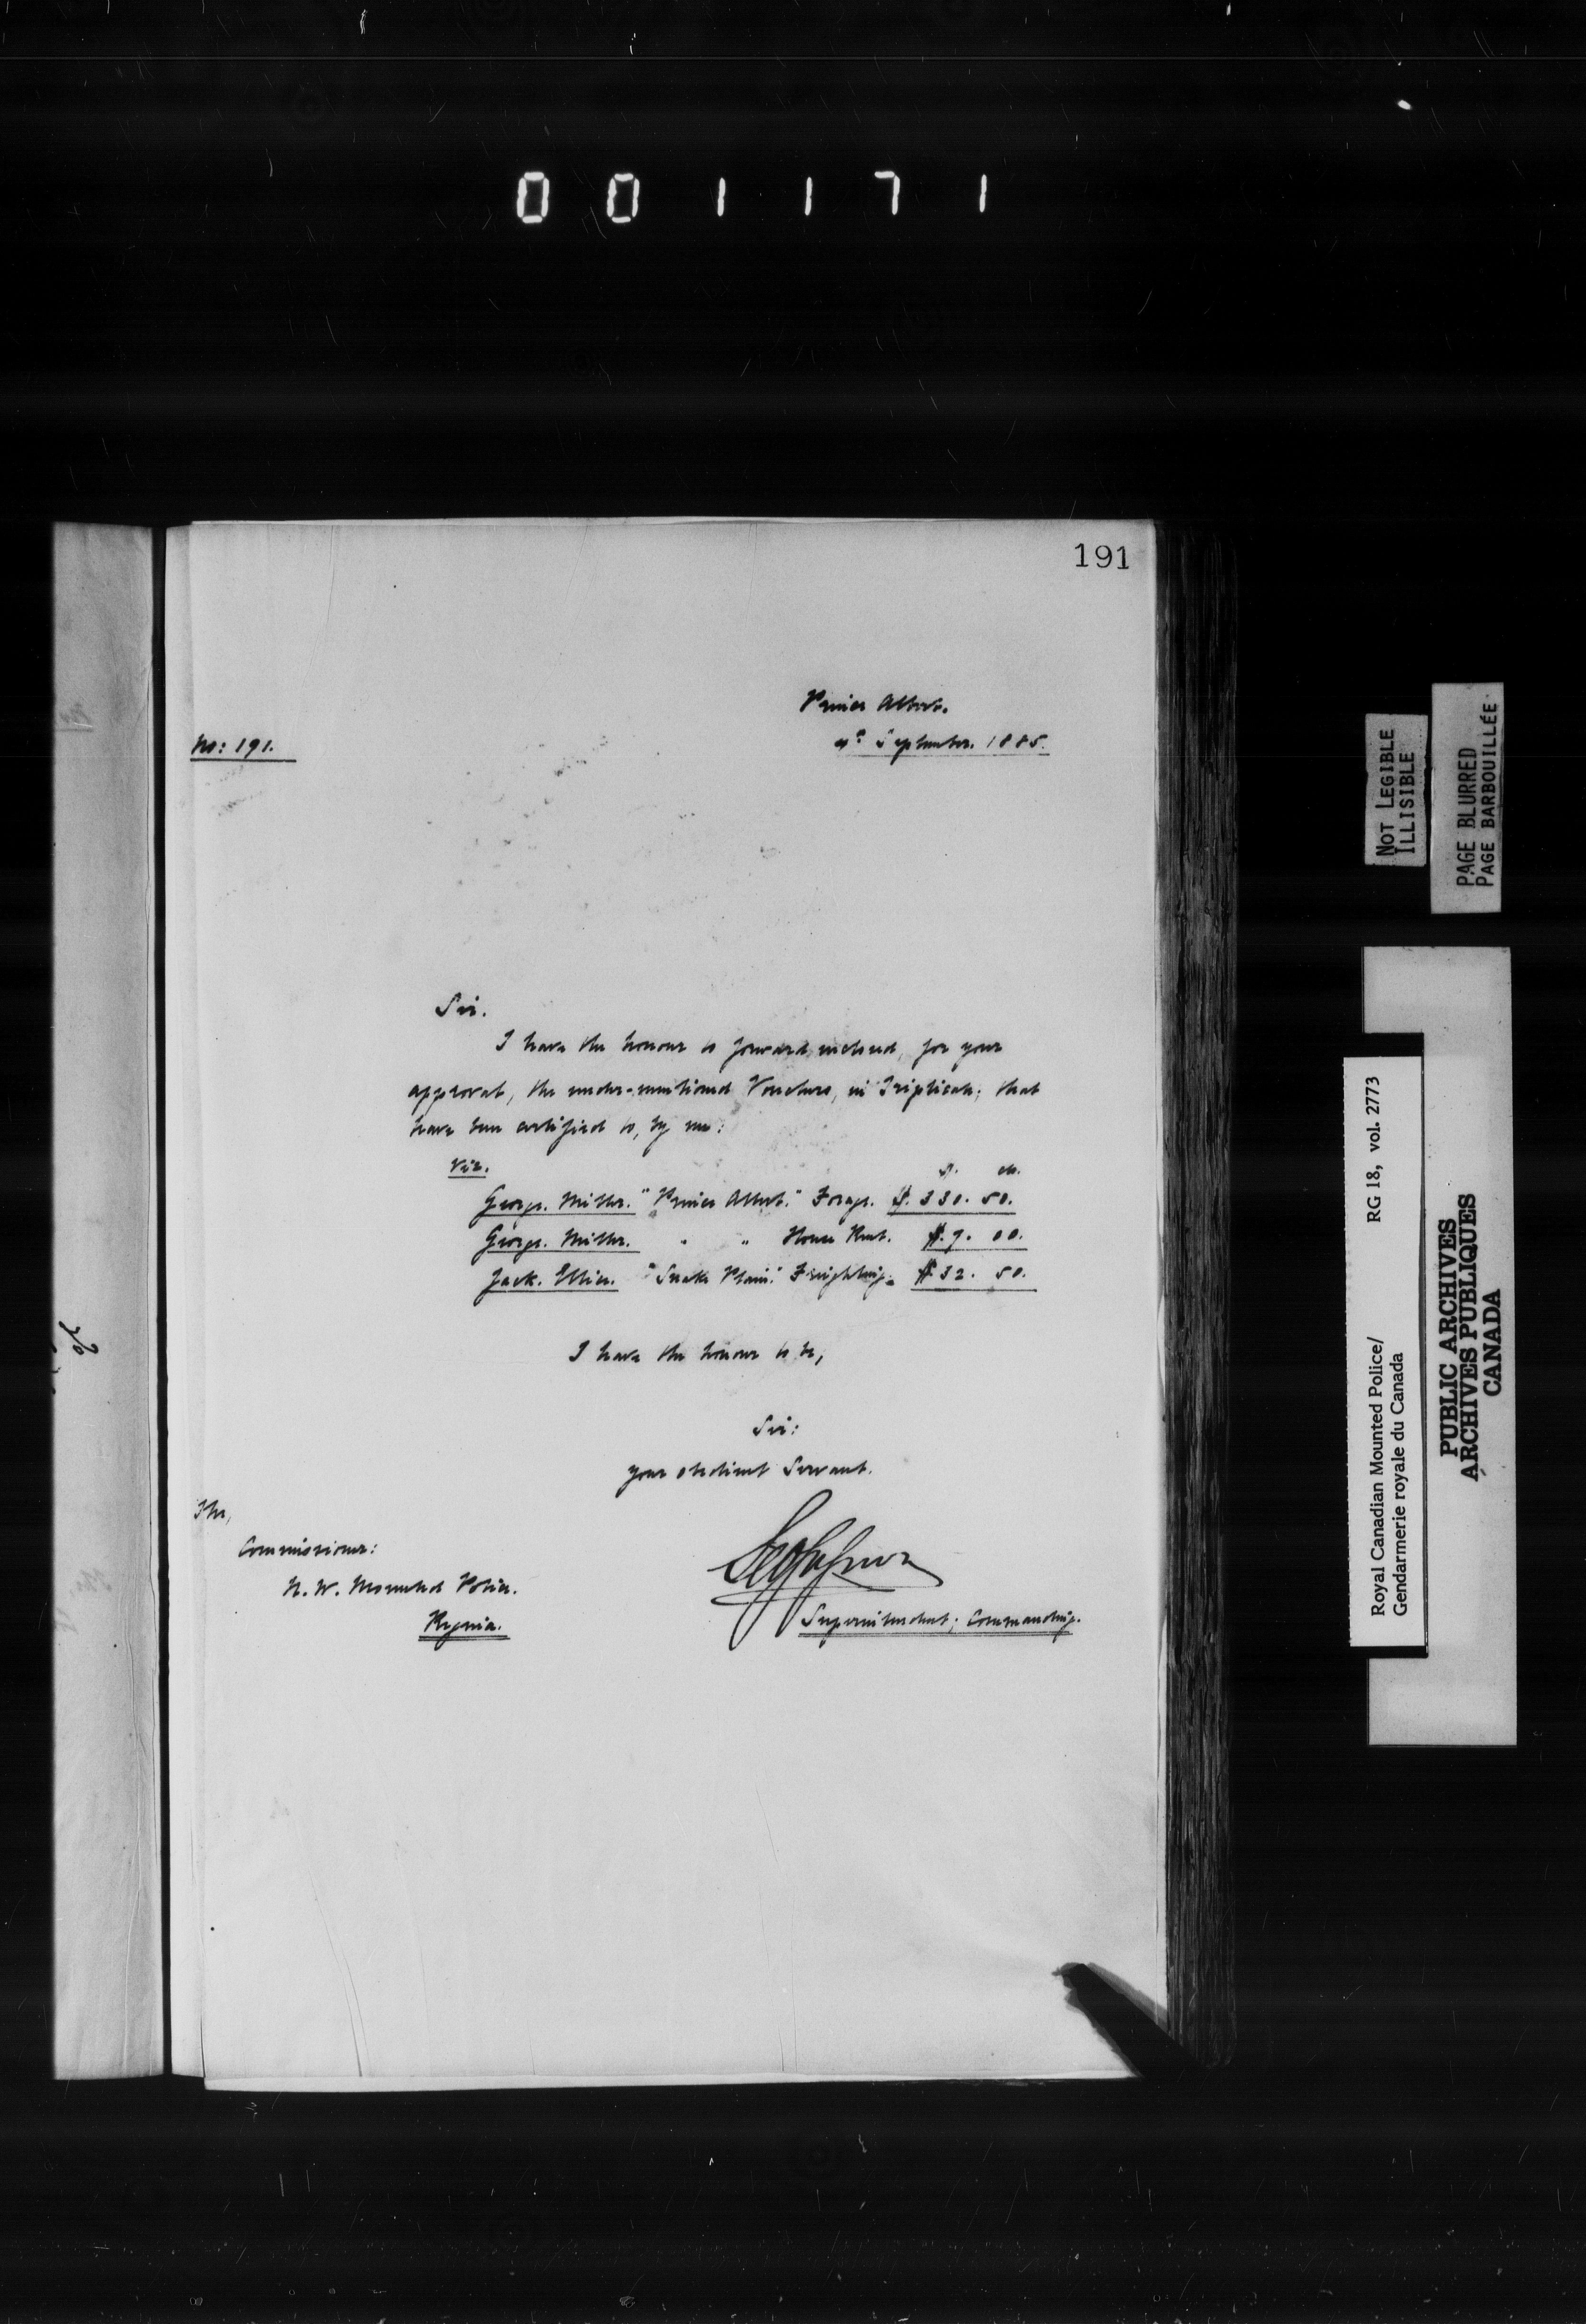 001171
191
Prince Albert.
No: 191.
4th September. 1885.
Sir.
I have the honour to forward, inclosed, for your
approval, the under-mentioned Vouchers, in Triplicate; that
have been certified to, by me:
Viz.
$. cts.
George. Miller. "Prince Albert." Forage. $. 330. 50.
George. Miller. " " House Rent. $. 9. 00.
Jack. Ellice. "Snake Plain." Freighting. $ 32. 50.
I have the honour to be,
Sir:
your obedient Servant.
The,
Commissioner:
N. W. Mounted Police.
Regina.
Superintendent; Commanding.
NOT LEGIBLE
ILLISIBLE
PAGE BLURRED
PAGE BARBOUILLÉE
Royal Canadian Mounted Police/ RG 18, vol. 2773
Gendarmerie royale du Canada
PUBLIC ARCHIVES
ARCHIVES PUBLIQUES
CANADA